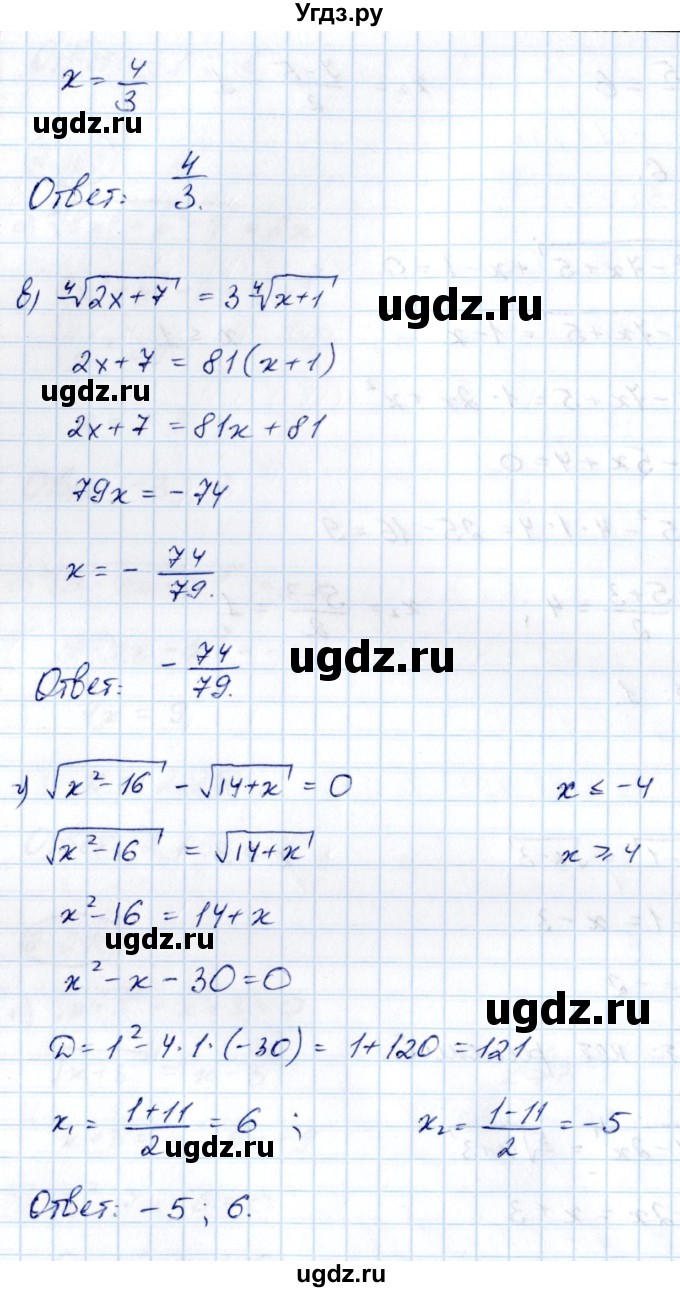 Угдз.ру
x = 4/3
ugdz.ru
Ответ: 4/3.
в) ∜(2x+7) = 3∜(x+1)
ugdz.ru
2x+7 = 81(x+1)
ugdz.ru
2x+7 = 81x+81
79x = -74
x = - 74/79.
ugdz.ru
Ответ: - 74/79.
г) √(x²-16) - √(14+x) = 0 x ≤ -4
√(x²-16) = √(14+x) x ⩾ 4
x²-16 = 14+x
ugdz.ru
x²-x-30=0
ugdz.ru
Д=1²-4·1·(-30) = 1+120 = 121
x₁ = (1+11)/2 = 6 ; x₂ = (1-11)/2 = -5
ugdz.ru
Ответ: -5; 6.
ugdz.ru